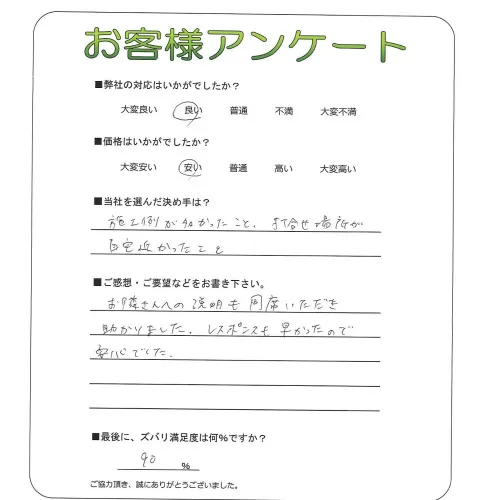 お客様アンケート
■弊社の対応はいかがでしたか？
大変良い 良い 普通 不満 大変不満
■価格はいかがでしたか？
大変安い 安い 普通 高い 大変高い
■当社を選んだ決め手は？
施工例が多かったこと、打合せ場所が
自宅近かったこと
■ご感想・ご要望などをお書き下さい。
お隣さんへの説明も同席いただき
助かりました。レスポンスも早かったので
安心でした。
■最後に、ズバリ満足度は何％ですか？
90 ％
ご協力頂き、誠にありがとうございました。